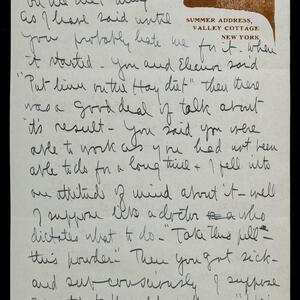 SUMMER ADDRESS,
VALLEY COTTAGE
NEW YORK
as I have said until
you probably hate me for it. when
it started - You and Eleanor said
"Put him on the Hay diet" then there
was a good deal of talk about
it's result - You said you were
able to work as you had not been
able to do for a long time & I fell into
an attitude of mind about it - well
I suppose like a doctor who
dictates what to do - "Take this pill -
this powder" Then you got sick -
and sub-consciously I suppose